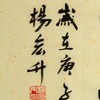 歲在庚子
楊崇升